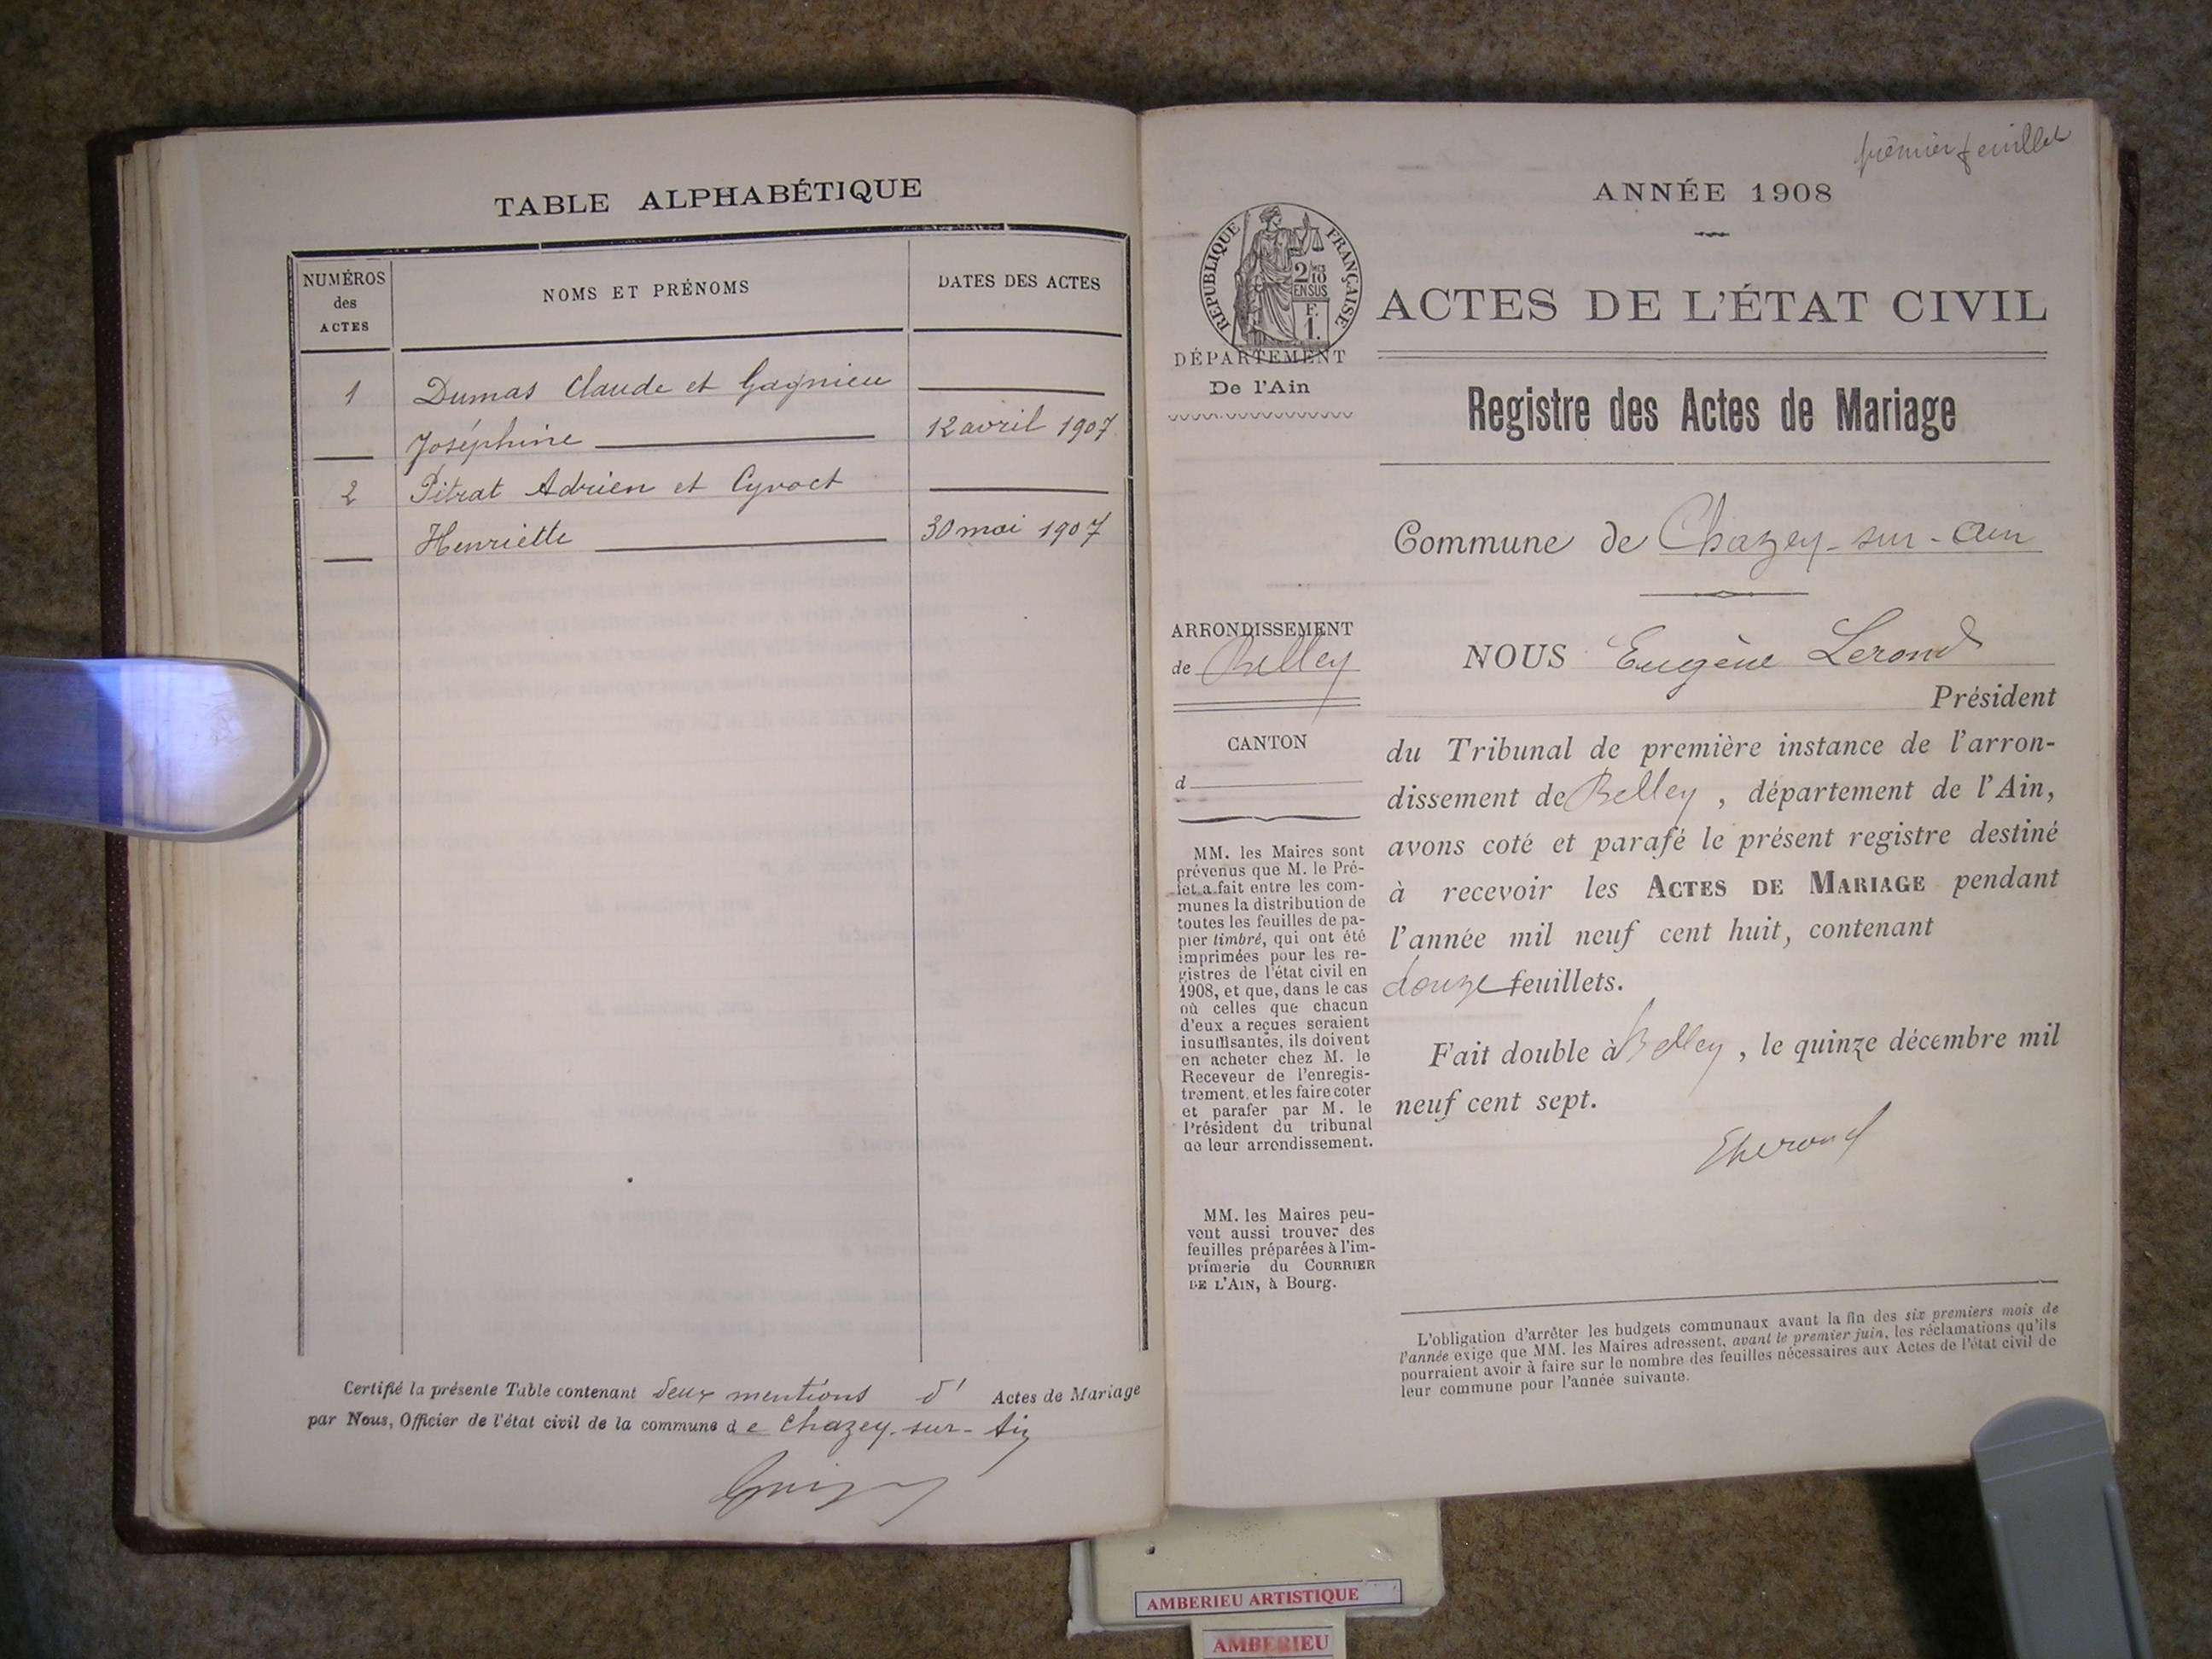 TABLE ALPHABÉTIQUE
NUMÉROS
des
ACTES
NOMS ET PRÉNOMS
DATES DES ACTES
1 Dumas Claude et Gagnieu
Joséphine 12 avril 1907
2 Pitrat Adrien et Cyvoct
Henriette 30 mai 1907
Certifié la présente Table contenant deux mentions d' Actes de Mariage
par Nous, Officier de l'état civil de la commune de Chazey-sur-Ain
premier feuillet
ANNÉE 1908
RÉPUBLIQUE FRANÇAISE
2/10
EN SUS
F.
1.
ACTES DE L'ÉTAT CIVIL
DÉPARTEMENT
De l'Ain
Registre des Actes de Mariage
Commune de Chazey-sur-Ain
ARRONDISSEMENT
de Belley
CANTON
d
MM. les Maires sont
prévenus que M. le Pré-
fet a fait entre les com-
munes la distribution de
toutes les feuilles de pa-
pier timbré, qui ont été
imprimées pour les re-
gistres de l'état civil en
1908, et que, dans le cas
où celles que chacun
d'eux a reçues seraient
insuffisantes, ils doivent
en acheter chez M. le
Receveur de l'enregis-
trement, et les faire coter
et parafer par M. le
Président du tribunal
de leur arrondissement.
MM. les Maires peu-
vent aussi trouver des
feuilles préparées à l'im-
primerie du COURRIER
DE L'AIN, à Bourg.
NOUS Eugène Lerond
Président
du Tribunal de première instance de l'arron-
dissement de Belley, département de l'Ain,
avons coté et parafé le présent registre destiné
à recevoir les ACTES DE MARIAGE pendant
l'année mil neuf cent huit, contenant
douze feuillets.
Fait double à Belley, le quinze décembre mil
neuf cent sept.
ELerond
L'obligation d'arrêter les budgets communaux avant la fin des six premiers mois de
l'année exige que MM. les Maires adressent, avant le premier juin, les réclamations qu'ils
pourraient avoir à faire sur le nombre des feuilles nécessaires aux Actes de l'état civil de
leur commune pour l'année suivante.
AMBERIEU ARTISTIQUE
AMBERIEU